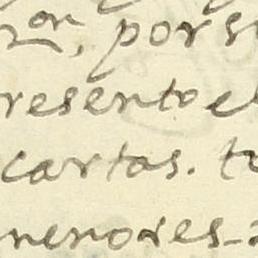 zon, por s
resento e
cartas. to
menores-